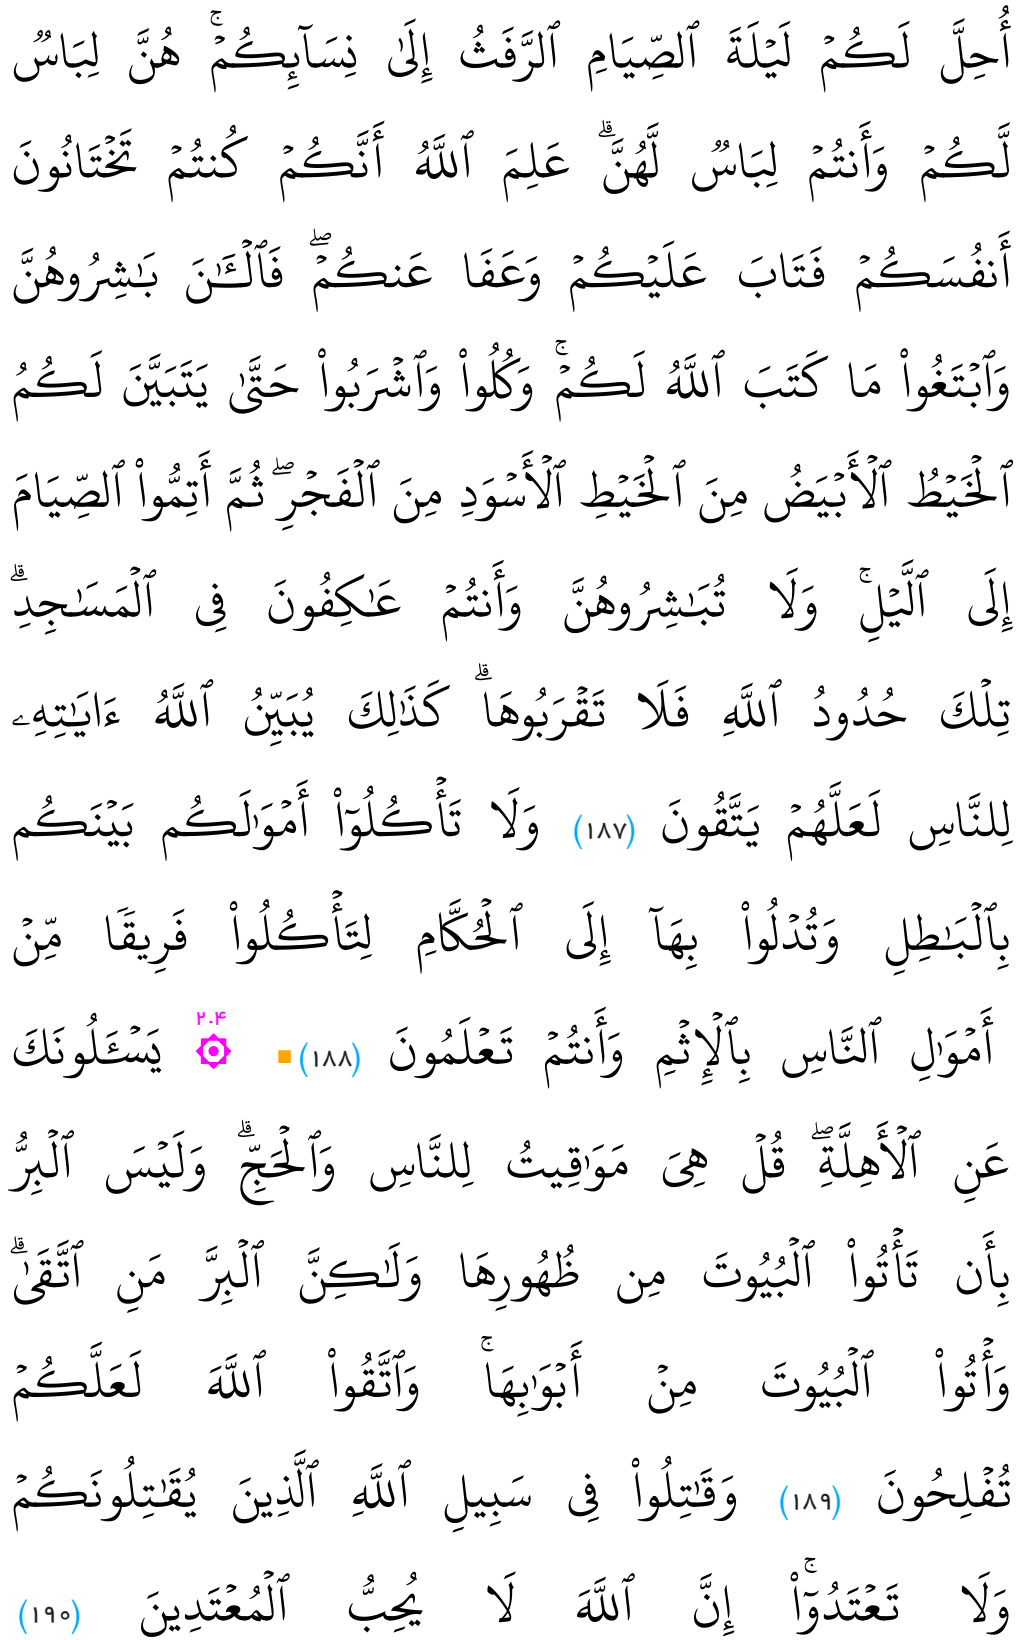 أُحِلَّ لَكُمۡ لَيۡلَةَ ٱلصِّيَامِ ٱلرَّفَثُ إِلَىٰ نِسَآئِكُمۡۚ هُنَّ لِبَاسٞ
لَّكُمۡ وَأَنتُمۡ لِبَاسٞ لَّهُنَّۗ عَلِمَ ٱللَّهُ أَنَّكُمۡ كُنتُمۡ تَخۡتَانُونَ
أَنفُسَكُمۡ فَتَابَ عَلَيۡكُمۡ وَعَفَا عَنكُمۡۖ فَٱلۡـَٰٔنَ بَٰشِرُوهُنَّ
وَٱبۡتَغُواْ مَا كَتَبَ ٱللَّهُ لَكُمۡۚ وَكُلُواْ وَٱشۡرَبُواْ حَتَّىٰ يَتَبَيَّنَ لَكُمُ
ٱلۡخَيۡطُ ٱلۡأَبۡيَضُ مِنَ ٱلۡخَيۡطِ ٱلۡأَسۡوَدِ مِنَ ٱلۡفَجۡرِۖ ثُمَّ أَتِمُّواْ ٱلصِّيَامَ
إِلَى ٱلَّيۡلِۚ وَلَا تُبَٰشِرُوهُنَّ وَأَنتُمۡ عَٰكِفُونَ فِي ٱلۡمَسَٰجِدِۗ
تِلۡكَ حُدُودُ ٱللَّهِ فَلَا تَقۡرَبُوهَاۗ كَذَٰلِكَ يُبَيِّنُ ٱللَّهُ ءَايَٰتِهِۦ
لِلنَّاسِ لَعَلَّهُمۡ يَتَّقُونَ (١٨٧) وَلَا تَأۡكُلُوٓاْ أَمۡوَٰلَكُم بَيۡنَكُم
بِٱلۡبَٰطِلِ وَتُدۡلُواْ بِهَآ إِلَى ٱلۡحُكَّامِ لِتَأۡكُلُواْ فَرِيقٗا مِّنۡ
أَمۡوَٰلِ ٱلنَّاسِ بِٱلۡإِثۡمِ وَأَنتُمۡ تَعۡلَمُونَ (١٨٨) ۲۰۴ يَسۡـَٔلُونَكَ
عَنِ ٱلۡأَهِلَّةِۖ قُلۡ هِيَ مَوَٰقِيتُ لِلنَّاسِ وَٱلۡحَجِّۗ وَلَيۡسَ ٱلۡبِرُّ
بِأَن تَأۡتُواْ ٱلۡبُيُوتَ مِن ظُهُورِهَا وَلَٰكِنَّ ٱلۡبِرَّ مَنِ ٱتَّقَىٰۗ
وَأۡتُواْ ٱلۡبُيُوتَ مِنۡ أَبۡوَٰبِهَاۚ وَٱتَّقُواْ ٱللَّهَ لَعَلَّكُمۡ
تُفۡلِحُونَ (١٨٩) وَقَٰتِلُواْ فِي سَبِيلِ ٱللَّهِ ٱلَّذِينَ يُقَٰتِلُونَكُمۡ
وَلَا تَعۡتَدُوٓاْۚ إِنَّ ٱللَّهَ لَا يُحِبُّ ٱلۡمُعۡتَدِينَ (١٩٠)